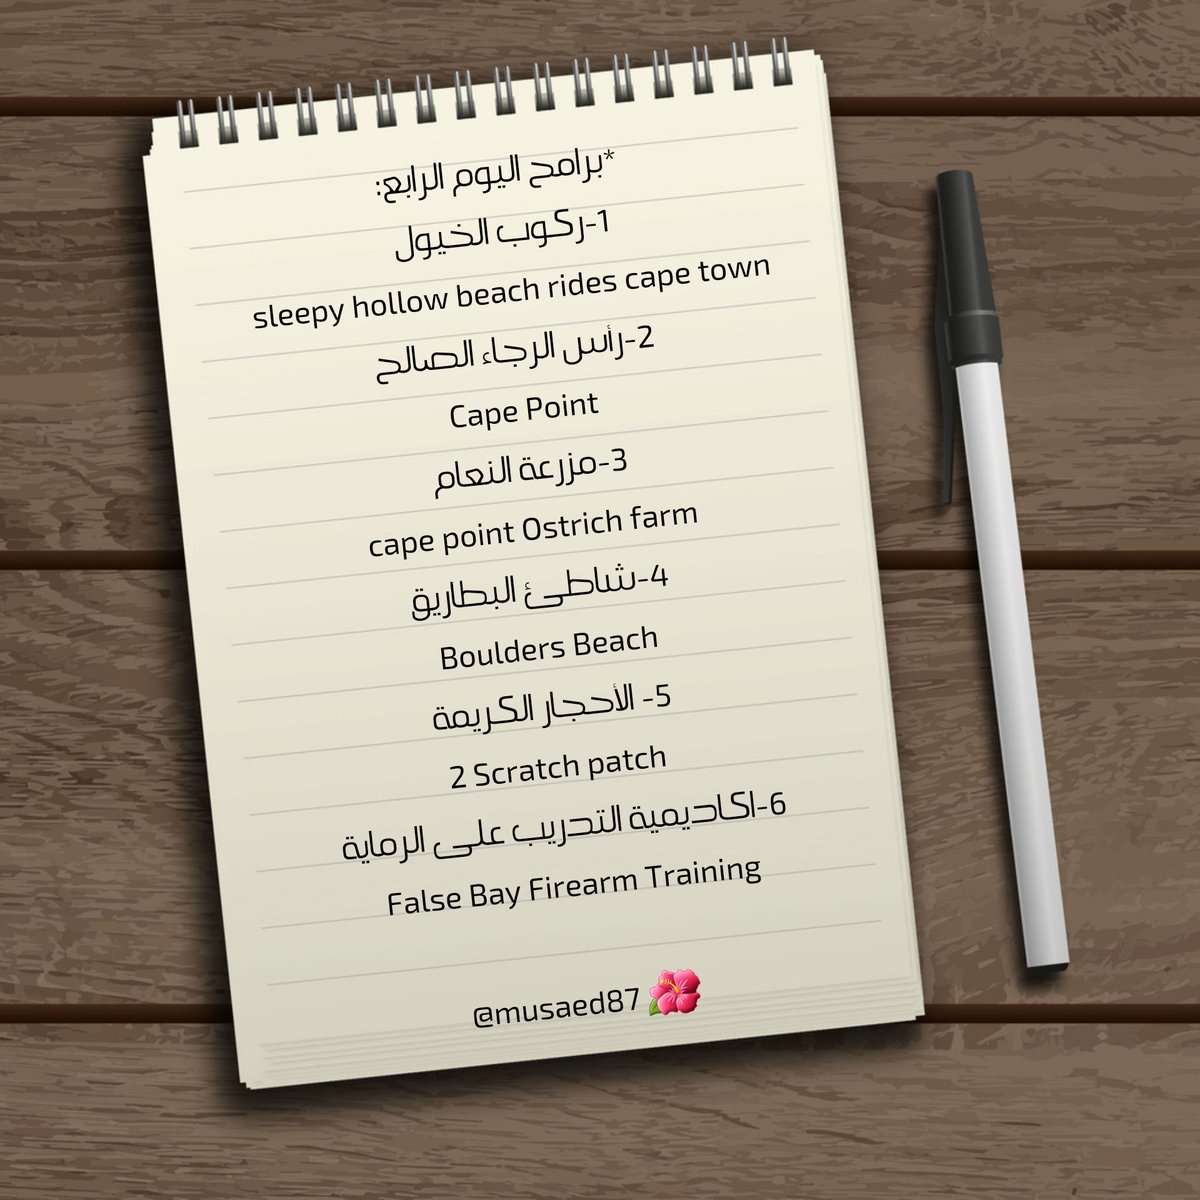 *برامج اليوم الرابع:
1-ركوب الخيول
sleepy hollow beach rides cape town
2-رأس الرجاء الصالح
Cape Point
3-مزرعة النعام
cape point Ostrich farm
4-شاطئ البطاريق
Boulders Beach
5- الأحجار الكريمة
2 Scratch patch
6-اكاديمية التدريب على الرماية
False Bay Firearm Training
@musaed87🌺